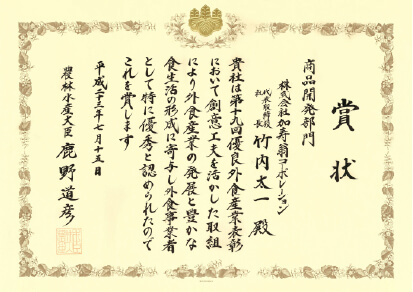 賞状
商品開発部門
株式会社加寿翁コーポレーション
代表取締役
社長
竹内太一 殿
貴社は第十九回優良外食産業表彰
において創意工夫を活かした取組
により外食産業の発展と豊かな
食生活の形成に寄与し外食事業者
として特に優秀と認められたので
これを賞します
平成二十三年七月十五日
農林水産大臣 鹿野道彦